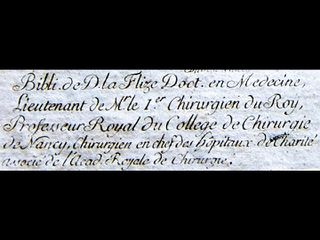 Bibli. de D. la Flize Doct. en Medecine,
Lieutenant de Mr. le 1.er Chirurgien du Roy,
Professeur Royal du College de Chirurgie
de Nancy, Chirurgien en chef des hôpitaux de Charité
associé de l'Acad. Royale de Chirurgie.